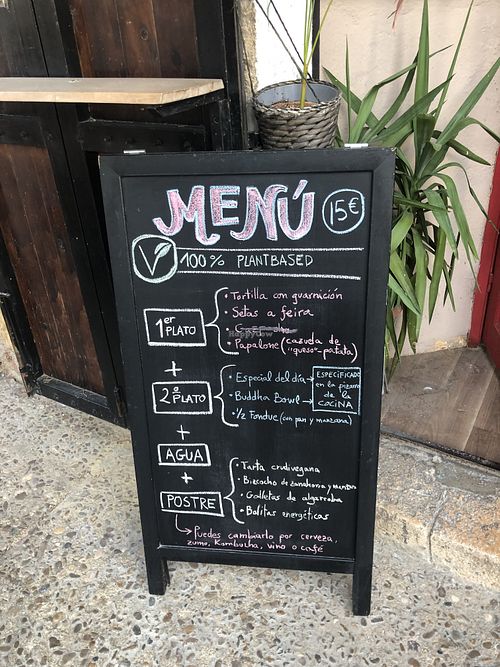 MENÚ 15€
V 100% PLANTBASED
1er PLATO
• Tortilla con guarnición
• Setas a feira
• Papalone (cazuela de "queso"-patata)
+
2º PLATO
• Especial del día →
• Buddha Bowl →
• 1/2 Fondue (con pan y manzana)
ESPECIFICADO
en la pizarra
de la
COCINA
+
AGUA
+
POSTRE
• Tarta crudivegana
• Bizcocho de zanahoria y
• Galletas de algarroba
• Bolitas energéticas
→ Puedes cambiarlo por cerveza,
zumo, Kombucha, vino o café
HappyCow